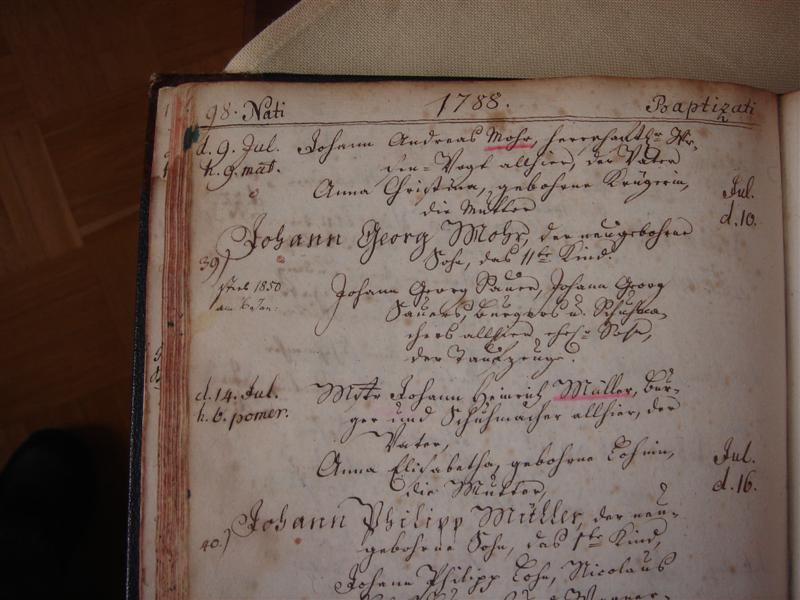 98. Nati 1788. Baptizati
d. 9. Jul. Johann Andreas Mohr,
h. 9. mat. Vogt allhier, der Vater
Anna Christina, gebohrne Krügerin,
die Mutter Jul.
d. 10.
Johann Georg Mohr, der neugebohrne
39) Sohn, das 11te Kind.
starb 1850 Johann Georg Sauer, Johann Georg
Sauers, Burgers u. Schuhma-
chers allhier, Sohn,
der Taufzeuge.
d. 14. Jul. Mstr Johann Heinrich Müller, Bur-
h. 6. pomer. ger und Schuhmacher allhier, der
Vater,
Anna Elisabetha, gebohrne Lohnin, Jul.
die Mutter, d. 16.
Johann Philipp Müller, der neu-
40.) gebohrne Sohn, das 1te Kind,
Johann Philipp Lohn, Nicolaus